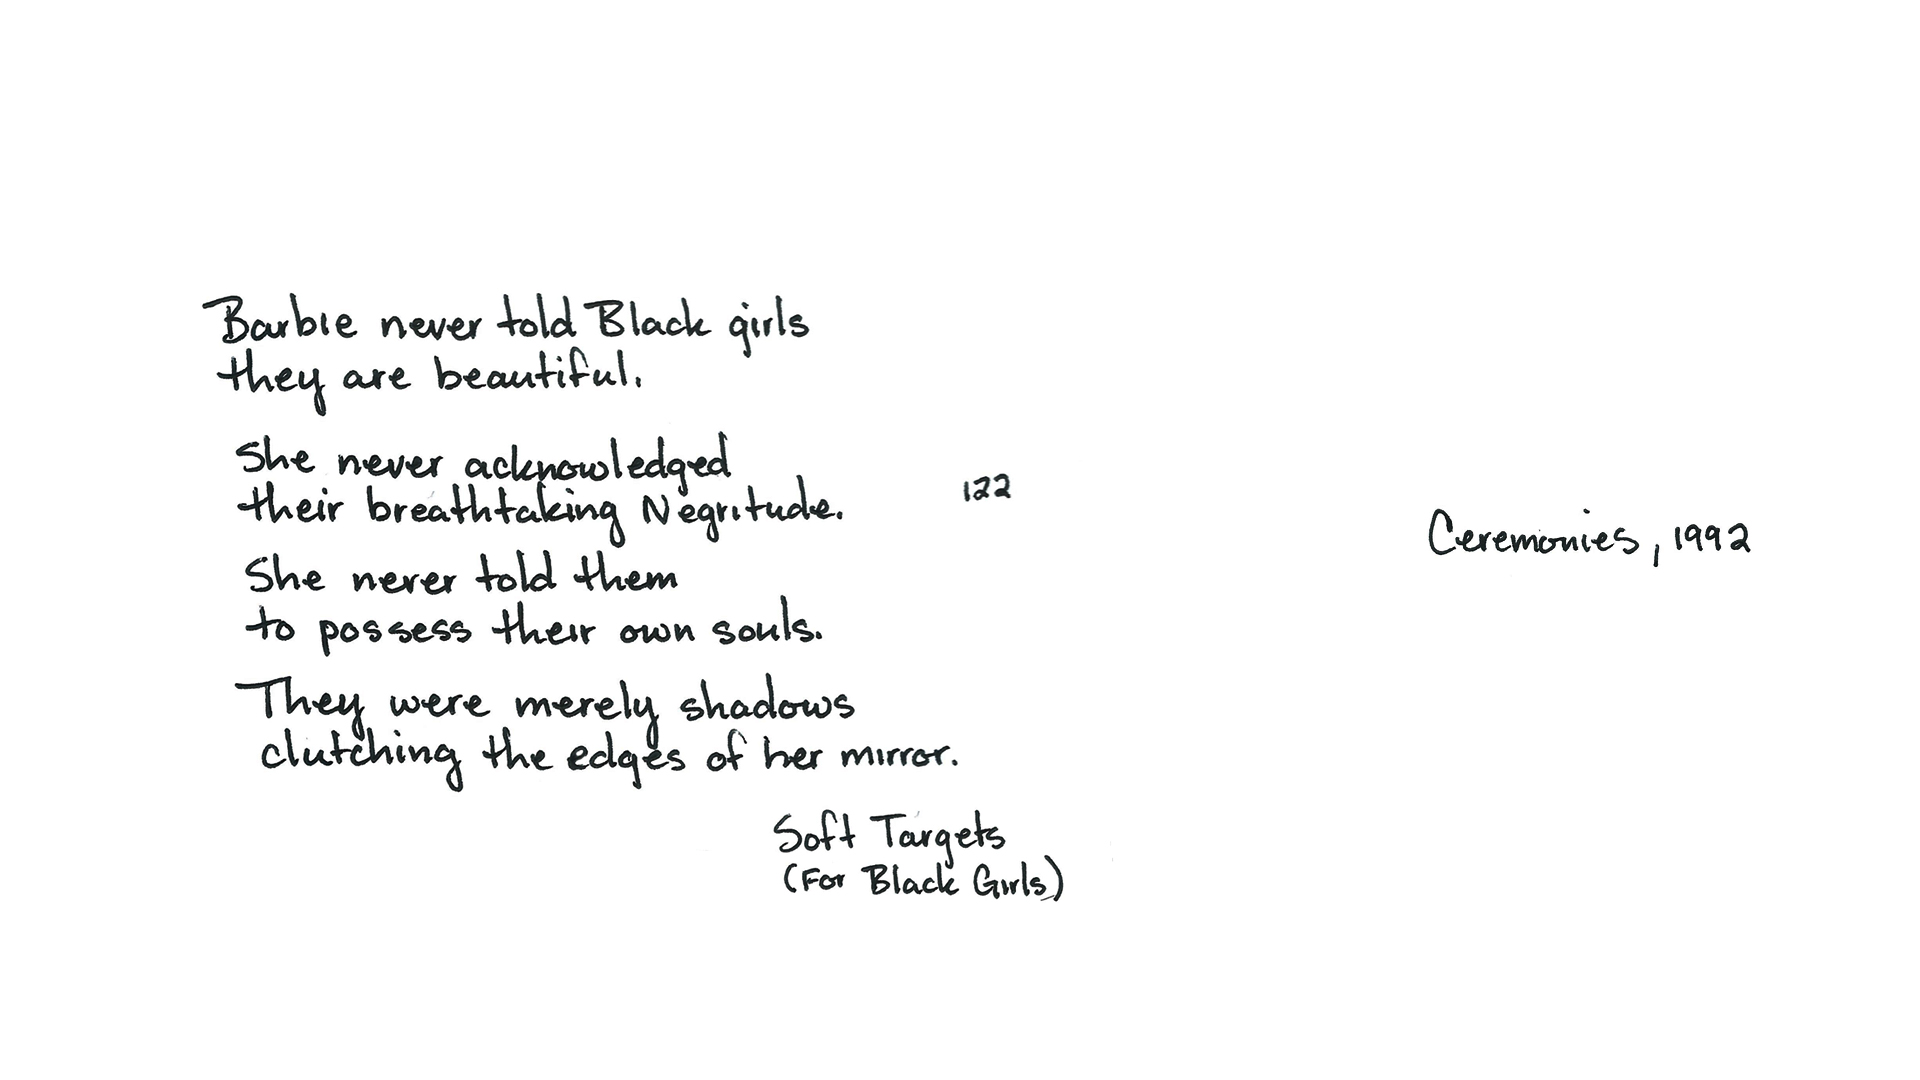 Barbie never told Black girls
they are beautiful.
She never acknowledged
their breathtaking Negritude.
She never told them
to possess their own souls.
They were merely shadows
clutching the edges of her mirror.
Soft Targets
(For Black Girls)
122
Ceremonies, 1992